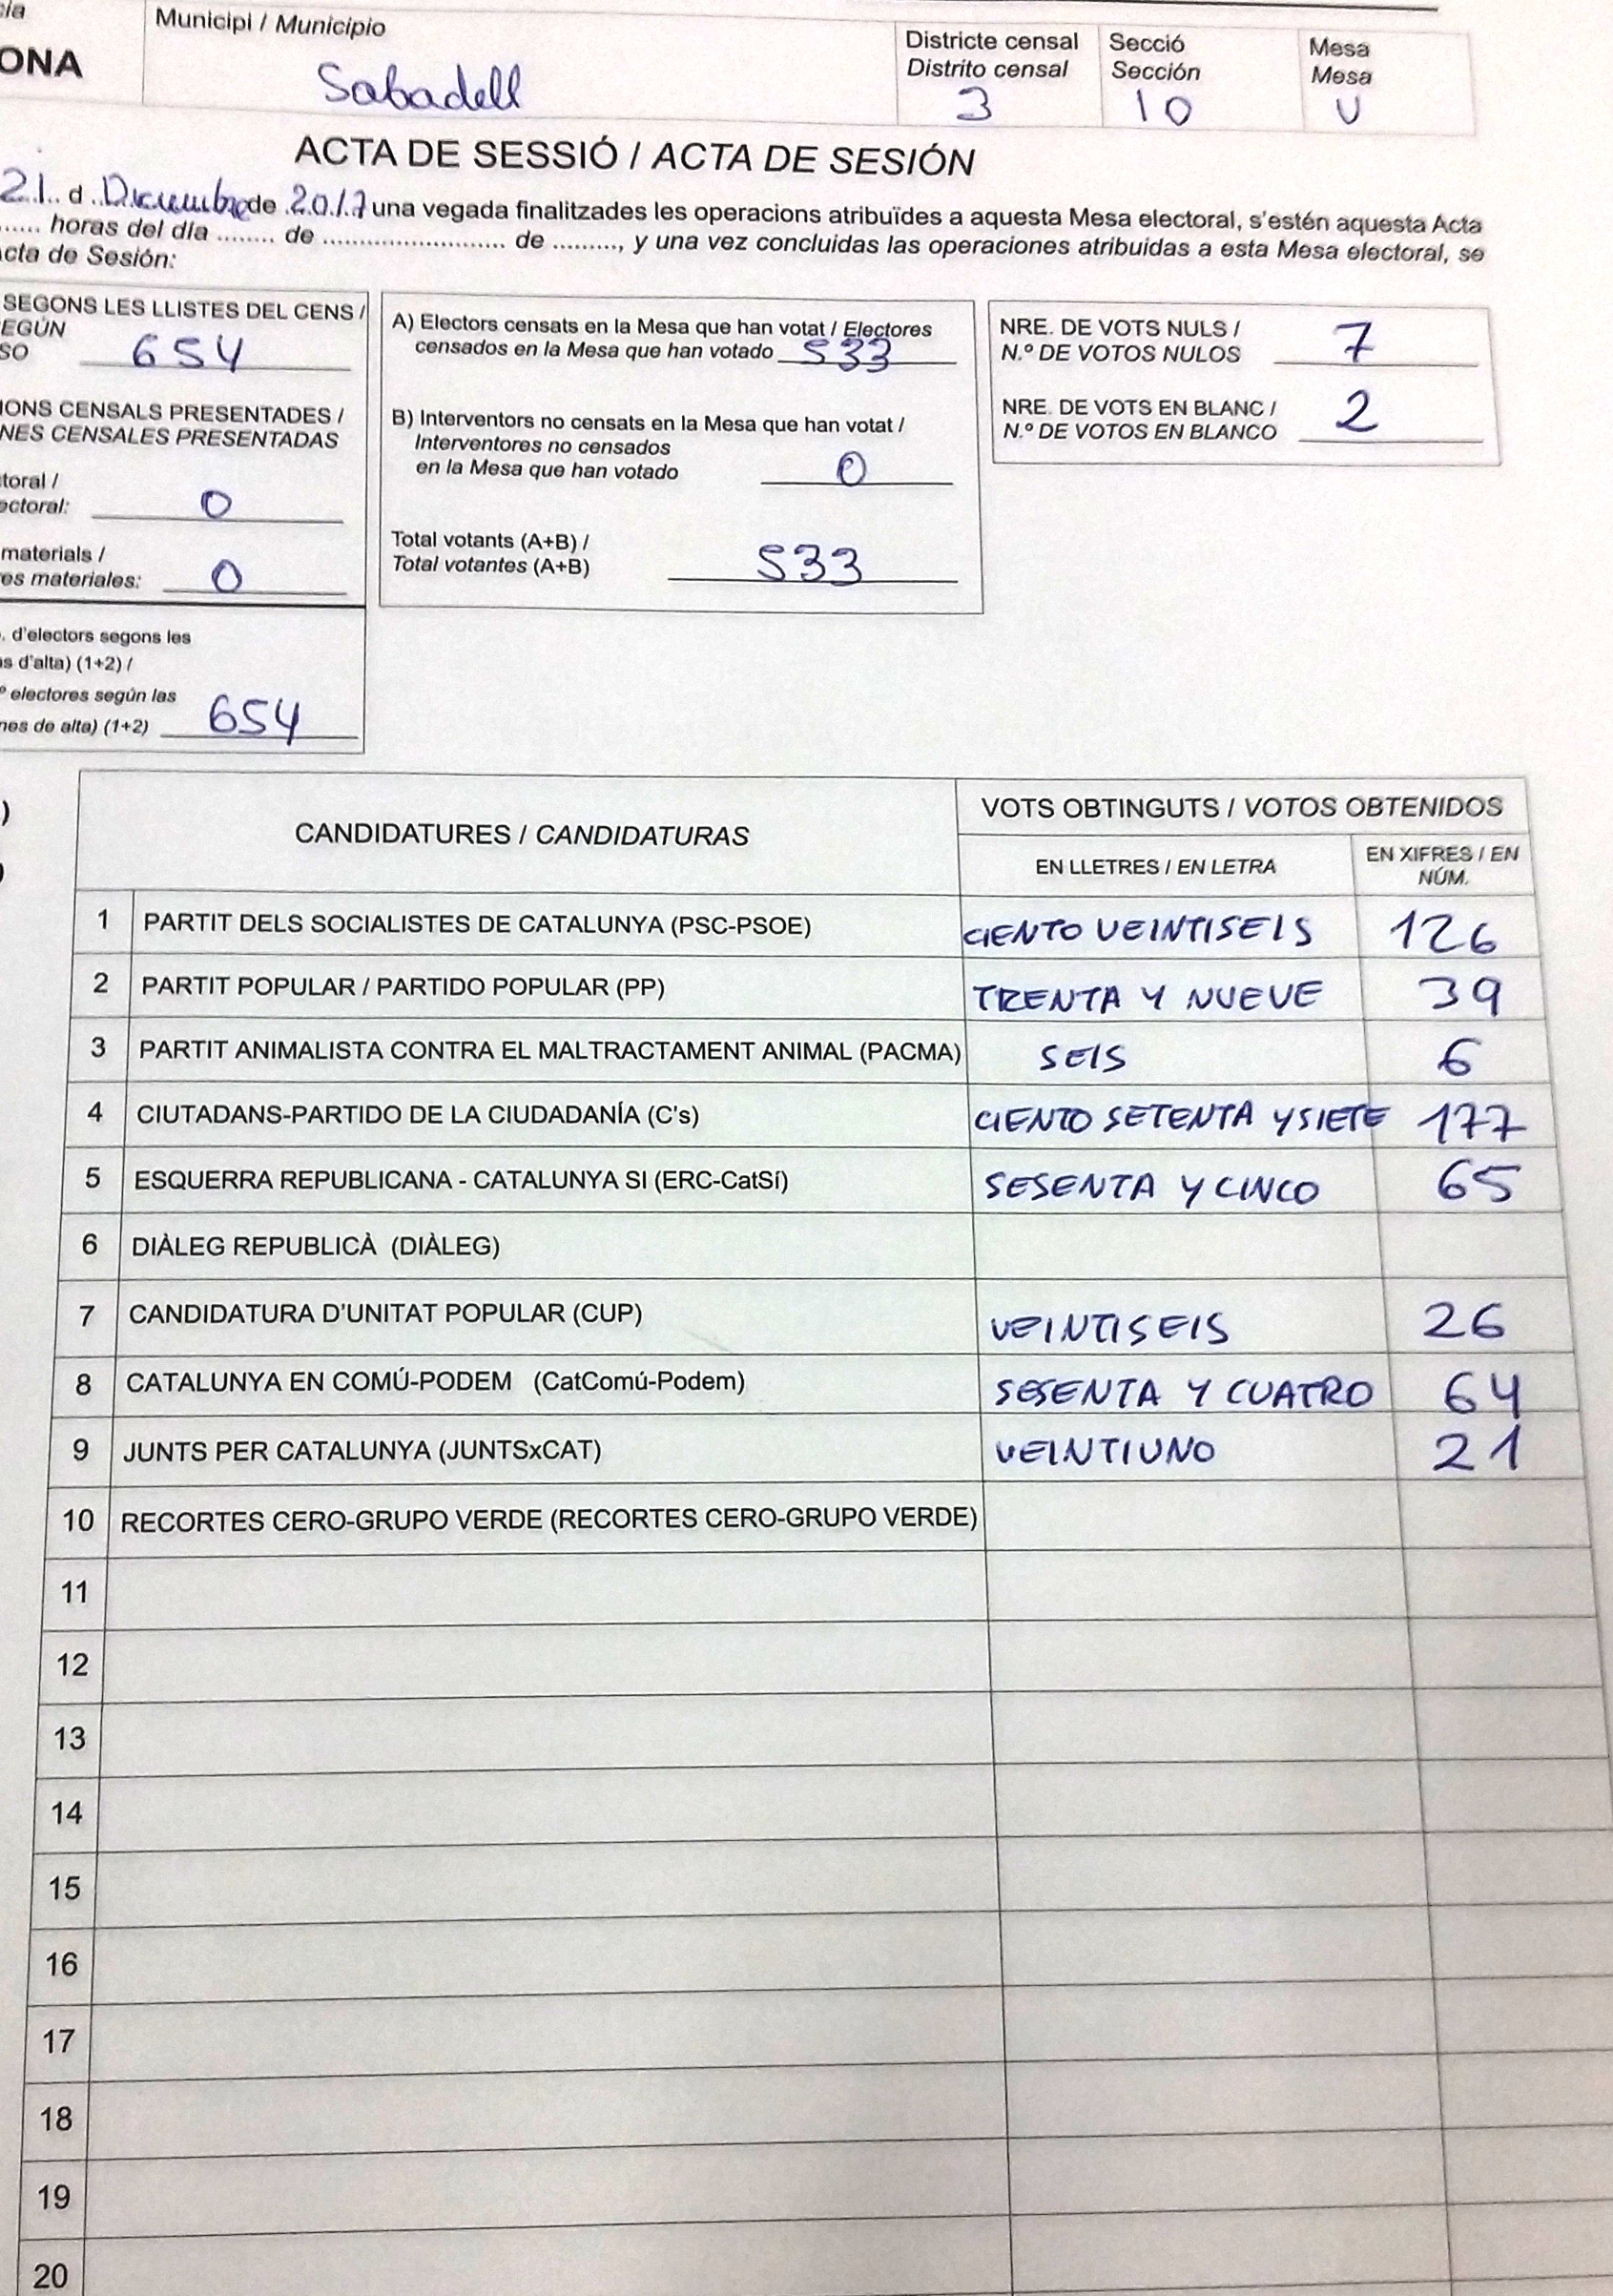 cia
ONA
Municipi / Municipio
Sabadell
Districte censal
Distrito censal
3
Secció
Sección
10
Mesa
Mesa
U
ACTA DE SESSIÓ / ACTA DE SESIÓN
21 d Diciembre de 2017 una vegada finalitzades les operacions atribuïdes a aquesta Mesa electoral, s'estén aquesta Acta
...... horas del día ........ de .......................... de .........., y una vez concluidas las operaciones atribuidas a esta Mesa electoral, se
cta de Sesión:
SEGONS LES LLISTES DEL CENS /
EGÚN
SO 654
IONS CENSALS PRESENTADES /
NES CENSALES PRESENTADAS
toral /
ectoral: 0
materials /
es materiales: 0
. d'electors segons les
s d'alta) (1+2) /
º electores según las
nes de alta) (1+2) 654
A) Electors censats en la Mesa que han votat / Electores
censados en la Mesa que han votado 533
B) Interventors no censats en la Mesa que han votat /
Interventores no censados
en la Mesa que han votado 0
Total votants (A+B) /
Total votantes (A+B) 533
NRE. DE VOTS NULS /
N.º DE VOTOS NULOS 7
NRE. DE VOTS EN BLANC /
N.º DE VOTOS EN BLANCO 2
)
CANDIDATURES / CANDIDATURAS
VOTS OBTINGUTS / VOTOS OBTENIDOS
EN LLETRES / EN LETRA
EN XIFRES / EN
NÚM.
1 PARTIT DELS SOCIALISTES DE CATALUNYA (PSC-PSOE) CIENTO VEINTISEIS 126
2 PARTIT POPULAR / PARTIDO POPULAR (PP) TRENTA Y NUEVE 39
3 PARTIT ANIMALISTA CONTRA EL MALTRACTAMENT ANIMAL (PACMA) SEIS 6
4 CIUTADANS-PARTIDO DE LA CIUDADANÍA (C's) CIENTO SETENTA Y SIETE 177
5 ESQUERRA REPUBLICANA - CATALUNYA SI (ERC-CatSí) SESENTA Y CINCO 65
6 DIÀLEG REPUBLICÀ (DIÀLEG)
7 CANDIDATURA D'UNITAT POPULAR (CUP) VEINTISEIS 26
8 CATALUNYA EN COMÚ-PODEM (CatComú-Podem) SESENTA Y CUATRO 64
9 JUNTS PER CATALUNYA (JUNTSxCAT) VEINTIUNO 21
10 RECORTES CERO-GRUPO VERDE (RECORTES CERO-GRUPO VERDE)
11
12
13
14
15
16
17
18
19
20